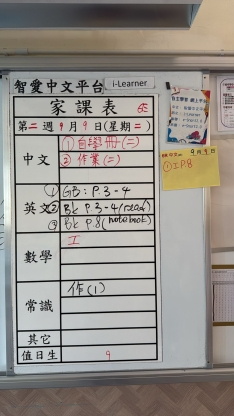 智愛中文平台 i-Learner
家課表 6E
第二週9月9日(星期二)
中文
① 自學冊(二)
② 作業(二)
英文
① GB: P.3-4
② Bk P.3-4(read)
③ Bk P.8(notebook)
數學
工
常識
作(1)
其它
值日生 9
9月9日
①工P.8